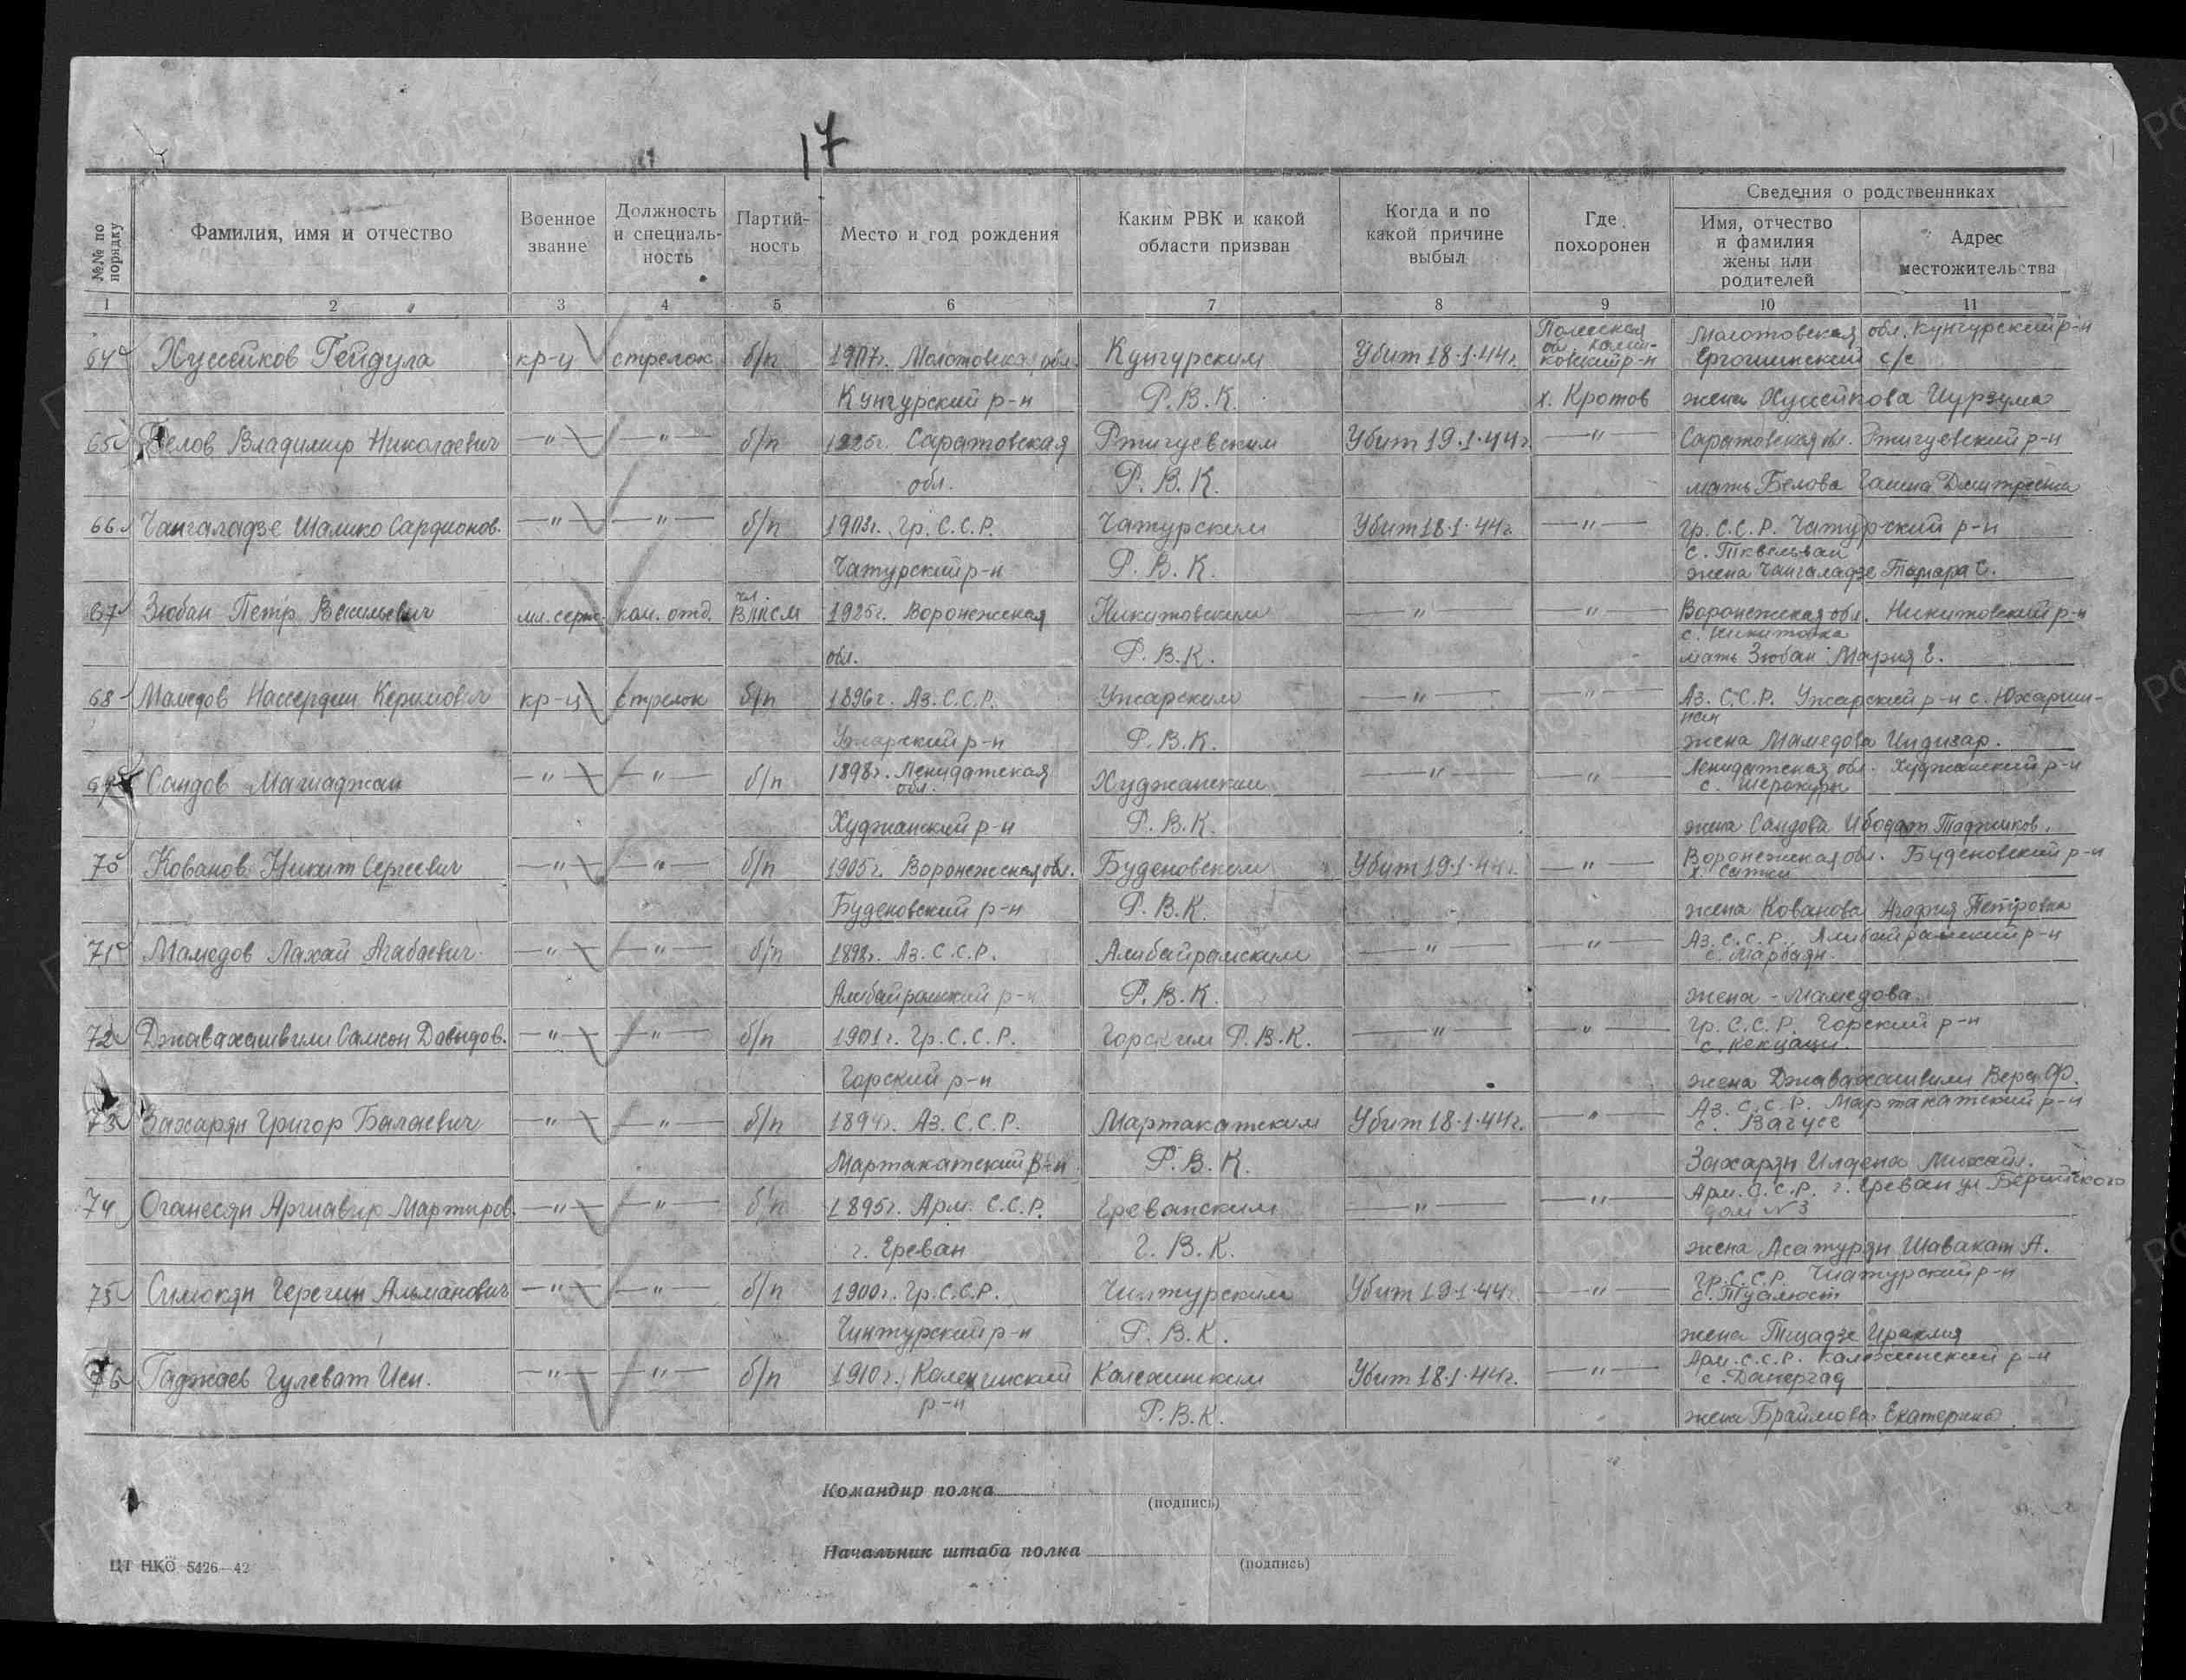 17
№№ по порядку
Фамилия, имя и отчество
Военное звание
Должность и специаль-ность
Партий-ность
Место и год рождения
Каким РВК и какой области призван
Когда и по какой причине выбыл
Где похоронен
Сведения о родственниках
Имя, отчество и фамилия жены или родителей
Адрес местожительства
1 2 3 4 5 6 7 8 9 10 11
64 Хусейков Гейдула кр-ц стрелок б/п 1907г. Молотовска обл. Кунгурским Убит 18.1.44г. Полесская обл. ковский р-н Молотовская обл. Кунгурский р-н с/с
Кунгурский р-н Р.В.К. х. Кротов жена Хусейкова Нурзума
65 Белов Владимир Николаевич —"— —"— б/п 1925г. Саратовская Ртищевским Убит 19.1.44г. —"— Саратовская обл. Ртищевский р-н
обл. Р.В.К. мать Белова
66 Чангаладзе Шалико Сардионов. —"— —"— б/п 1903г. Гр.С.С.Р. Чатурским Убит 18.1.44г. —"— Гр.С.С.Р. Чатурский р-н
Чатурский р-н Р.В.К. жена Чангаладзе Тамара С.
67 Зюбан Петр Васильевич мл. серж. ком. отд. чл. ВЛКСМ 1925г. Воронежская Никитовским —"— —"— Воронежская обл. Никитовский р-н
с. Никитовка
обл. Р.В.К. мать Зюбан Мария Е.
68 Мамедов Нассердин Керимович кр-ц стрелок б/п 1896г. Аз.С.С.Р. Ужарским —"— —"— Аз.С.С.Р. Ужарский р-н
Ужарский р-н Р.В.К. жена Мамедова
69 Саидов —"— —"— б/п 1898г. Ленидатская обл. Худжанским —"— —"— Ленидатская обл. Худжанский р-н
Худжанский р-н Р.В.К. жена Саидова Ибодат Таджиков.
70 Кованов Никит Сергеевич —"— —"— б/п 1905г. Воронежская обл. Буденовским Убит 19.1.44г. —"— Воронежская обл. Буденовский р-н
Буденовский р-н Р.В.К. жена Кованова Агафия Петровна
71 Мамедов Лахай Агабаевич —"— —"— б/п 1898г. Аз.С.С.Р. Алибайрамским —"— —"— Аз.С.С.Р. Алибайрамский р-н
Алибайрамский р-н Р.В.К. жена - Мамедова
72 Джавахашвили Самсон Давыдов. —"— —"— б/п 1901г. Гр.С.С.Р. Горским Р.В.К. —"— —"— Гр.С.С.Р. Горский р-н
Горский р-н жена Джавахашвили Вера Ф.
73 Захарян Григор Балаевич —"— —"— б/п 1894г. Аз.С.С.Р. Мартакатским Убит 18.1.44г. —"— Аз.С.С.Р. Мартакатский р-н
с. Вагусе
Мартакатский р-н Р.В.К. Захарян
74 Оганесян Аршавир Мартиров. —"— —"— б/п 1895г. Арм.С.С.Р. Ереванским —"— —"— Арм.С.С.Р. г. Ереван ул
дом №3
г. Ереван Г.В.К. жена Асатурян Шавакат А.
75 Симокян Герегин Альманович —"— —"— б/п 1900г. Гр.С.С.Р. Чиатурским Убит 19.1.44г. —"— Гр.С.С.Р. Чиатурский р-н
Чиатурский р-н Р.В.К. жена
76 Гаджаев Гулеват Исн. —"— —"— б/п 1910г. Калининский Калининским Убит 18.1.44г. —"— Арм.С.С.Р. Калининский р-н
р-н Р.В.К. жена Браимова Екатерина
Командир полка
(подпись)
Начальник штаба полка
(подпись)
ЦТ НКО 5426—42